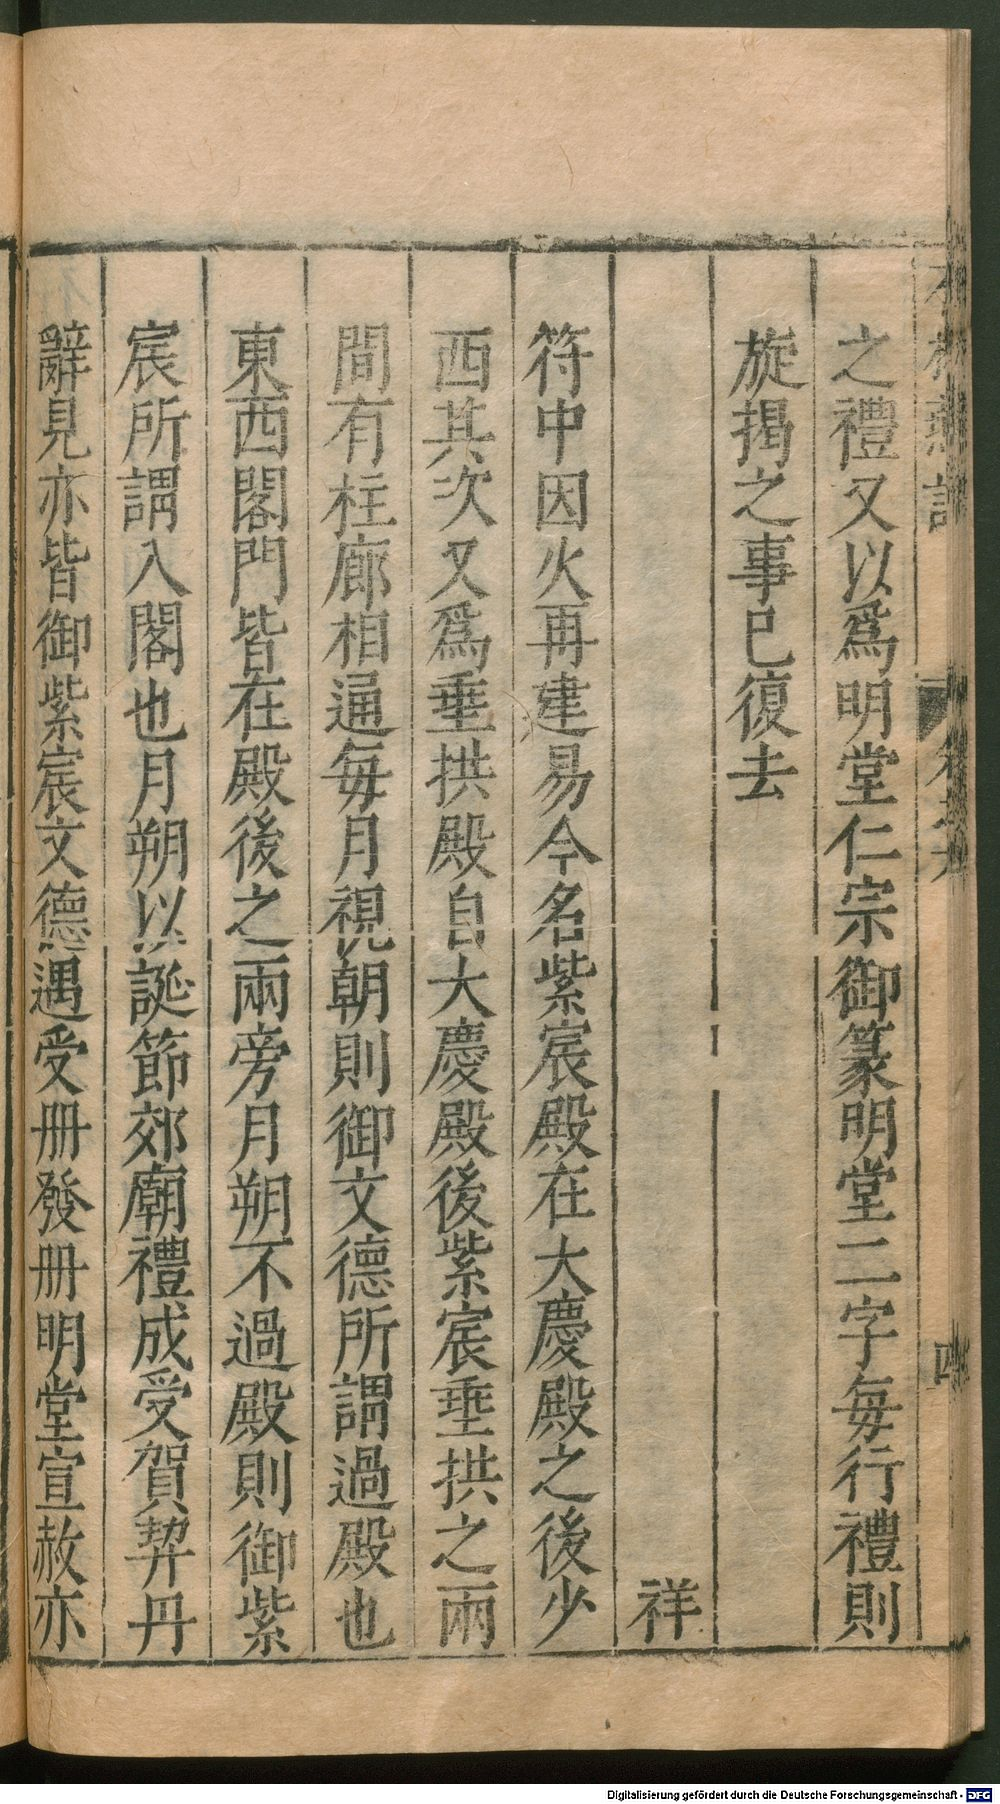 之禮又以爲明堂仁宗御篆明堂二字毎行禮則
旋揭之事已復去
祥
符中因火再建易今名紫宸殿在大慶殿之後少
西其次又爲垂拱殿自大慶殿後紫宸垂拱之兩
間有柱廊相通毎月視朝則御文德所謂過殿也
東西閤門皆在殿後之兩旁月朔不過殿則御紫
宸所謂入閤也月朔以誕節郊廟禮成受賀契丹
辭見亦皆御紫宸文德遇受册發册明堂宣赦亦
Digitalisierung gefördert durch die Deutsche Forschungsgemeinschaft - DFG